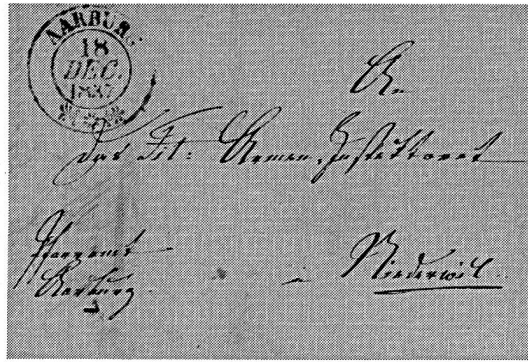 AARBURG
18
DEC.
1837
An
Das Tit: Armen-Inspektorat
Pfarramt
Aarburg.
Niederwil.